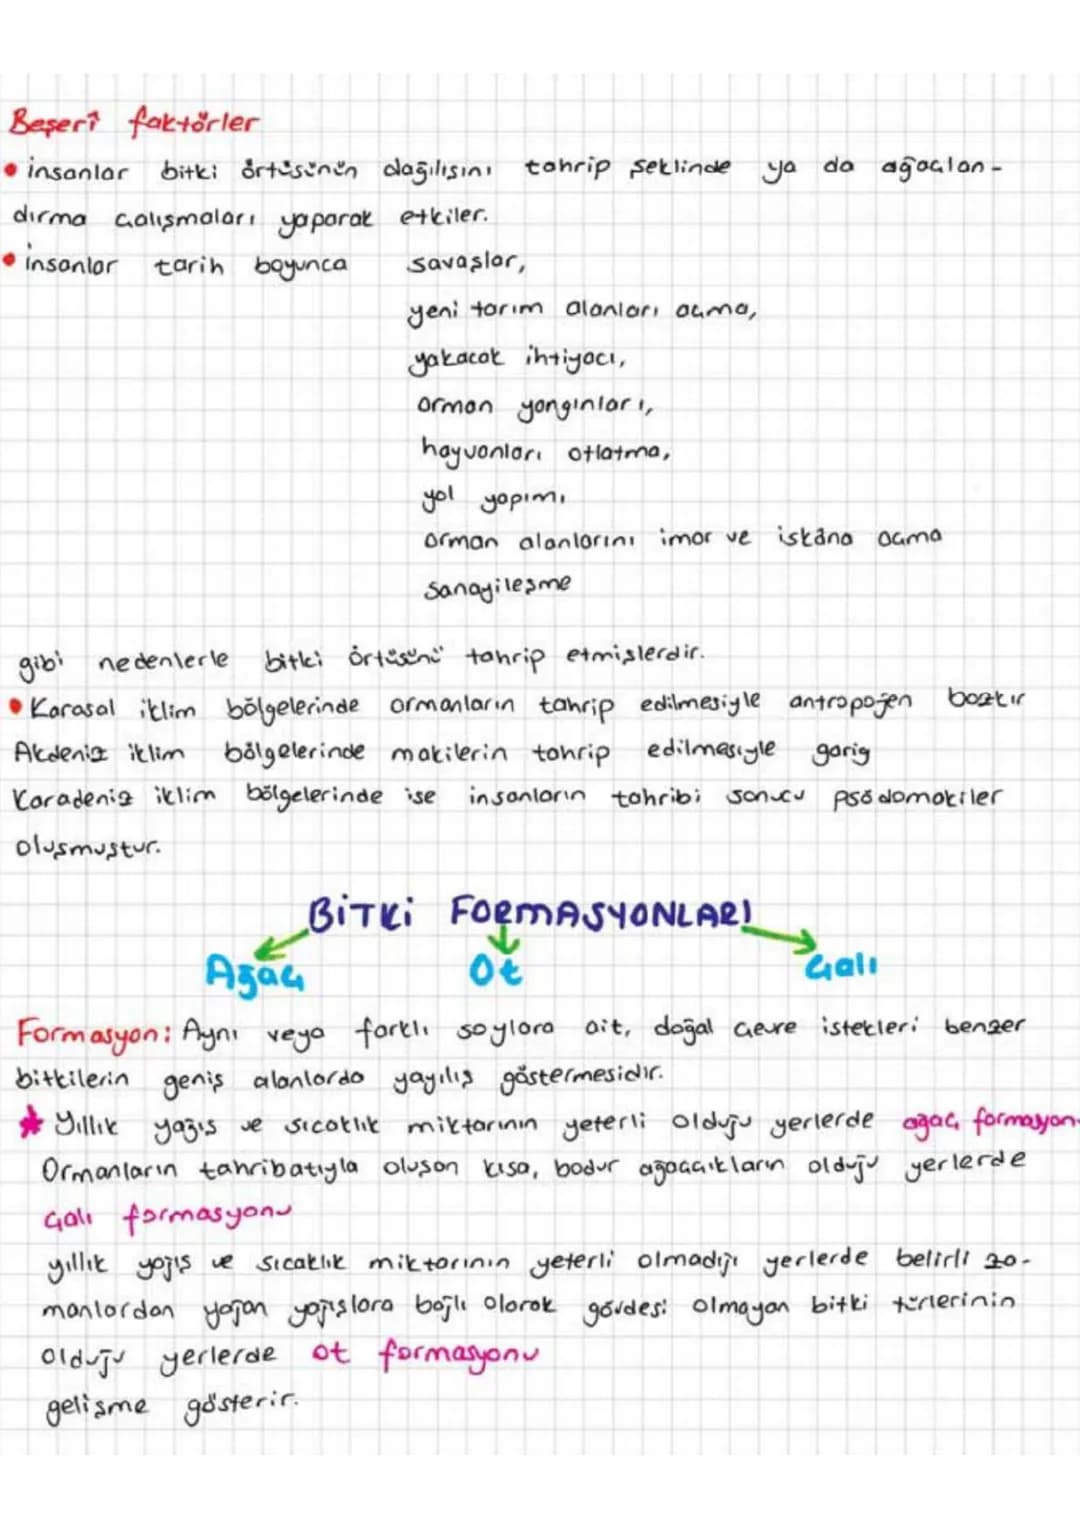 Beşerî faktörler
• insanlar bitki örtüsünün dağılışını tahrip şeklinde ya da ağaçlan-
dırma çalışmaları yaparak etkiler.
• insanlar tarih boyunca savaşlar,
yeni tarım alanları açma,
yakacak ihtiyacı,
orman yangınları,
hayvanları otlatma,
yol yapımı
orman alanlarını imar ve iskâna açma
sanayileşme
gibi nedenlerle bitki örtüsünü tahrip etmişlerdir.
• Karasal iklim bölgelerinde ormanların tahrip edilmesiyle antropojen bozkır
Akdeniz iklim bölgelerinde makilerin tahrip edilmesiyle garig
Karadeniz iklim bölgelerinde ise insanların tahribi sonucu psödomakiler
oluşmuştur.
BİTKİ FORMASYONLARI
Ağaç Ot Çalı
Formasyon: Aynı veya farklı soylara ait, doğal çevre istekleri benzer
bitkilerin geniş alanlarda yayılış göstermesidir.
* Yıllık yağış ve sıcaklık miktarının yeterli olduğu yerlerde ağaç formasyon-
Ormanların tahribatıyla oluşan kısa, bodur ağaççıkların olduğu yerlerde
Çalı formasyonu
yıllık yağış ve sıcaklık miktarının yeterli olmadığı yerlerde belirli za-
manlardan yağan yağışlara bağlı olarak gövdesi olmayan bitki türlerinin
olduğu yerlerde ot formasyonu
gelişme gösterir.